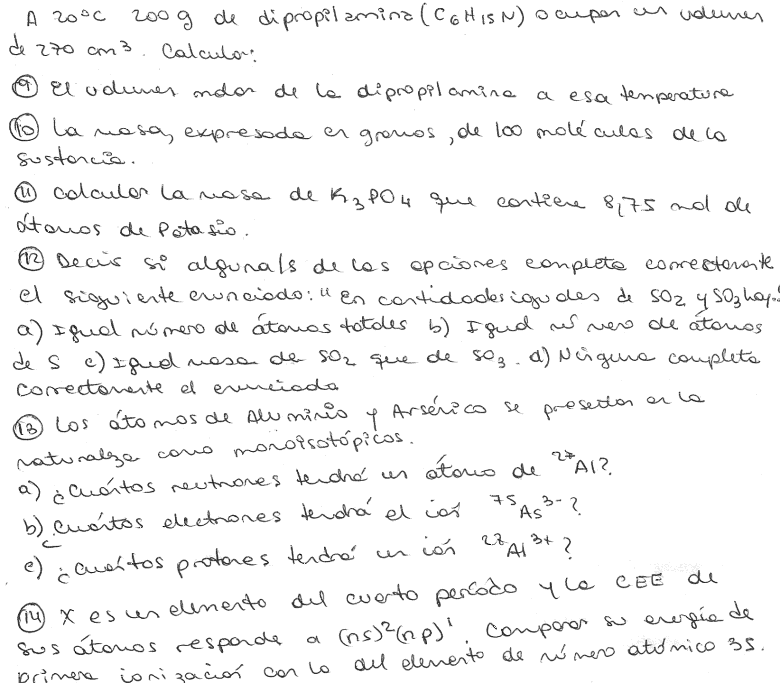 A 20°C 200 g de dipropilamina (C6H15N) ocupan un volumen
de 270 cm3. Calcular:
⑨ El volumen molar de la dipropilamina a esa temperatura
⑩ La masa, expresada en gramos, de 100 moléculas de la
sustancia.
⑪ Calcular la masa de K3PO4 que contiene 8,75 mol de
átomos de Potasio.
⑫ Decir si alguna/s de las opciones completa correctamente
el siguiente enunciado: "En cantidades iguales de SO2 y SO3 hay..."
a) Igual número de átomos totales b) Igual número de átomos
de S c) Igual masa de SO2 que de SO3. d) Ninguna completa
correctamente el enunciado
⑬ Los átomos de Aluminio y Arsénico se presentan en la
naturaleza como monoisotópicos.
a) ¿Cuántos neutrones tendrá un átomo de 27Al?
b) ¿Cuántos electrones tendrá el ión 75As3-?
c) ¿Cuántos protones tendrá un ión 27Al3+?
⑭ X es un elemento del cuarto período y la CEE de
sus átomos responde a (ns)2(np)1. Comparar su energía de
primera ionización con la del elemento de número atómico 35.